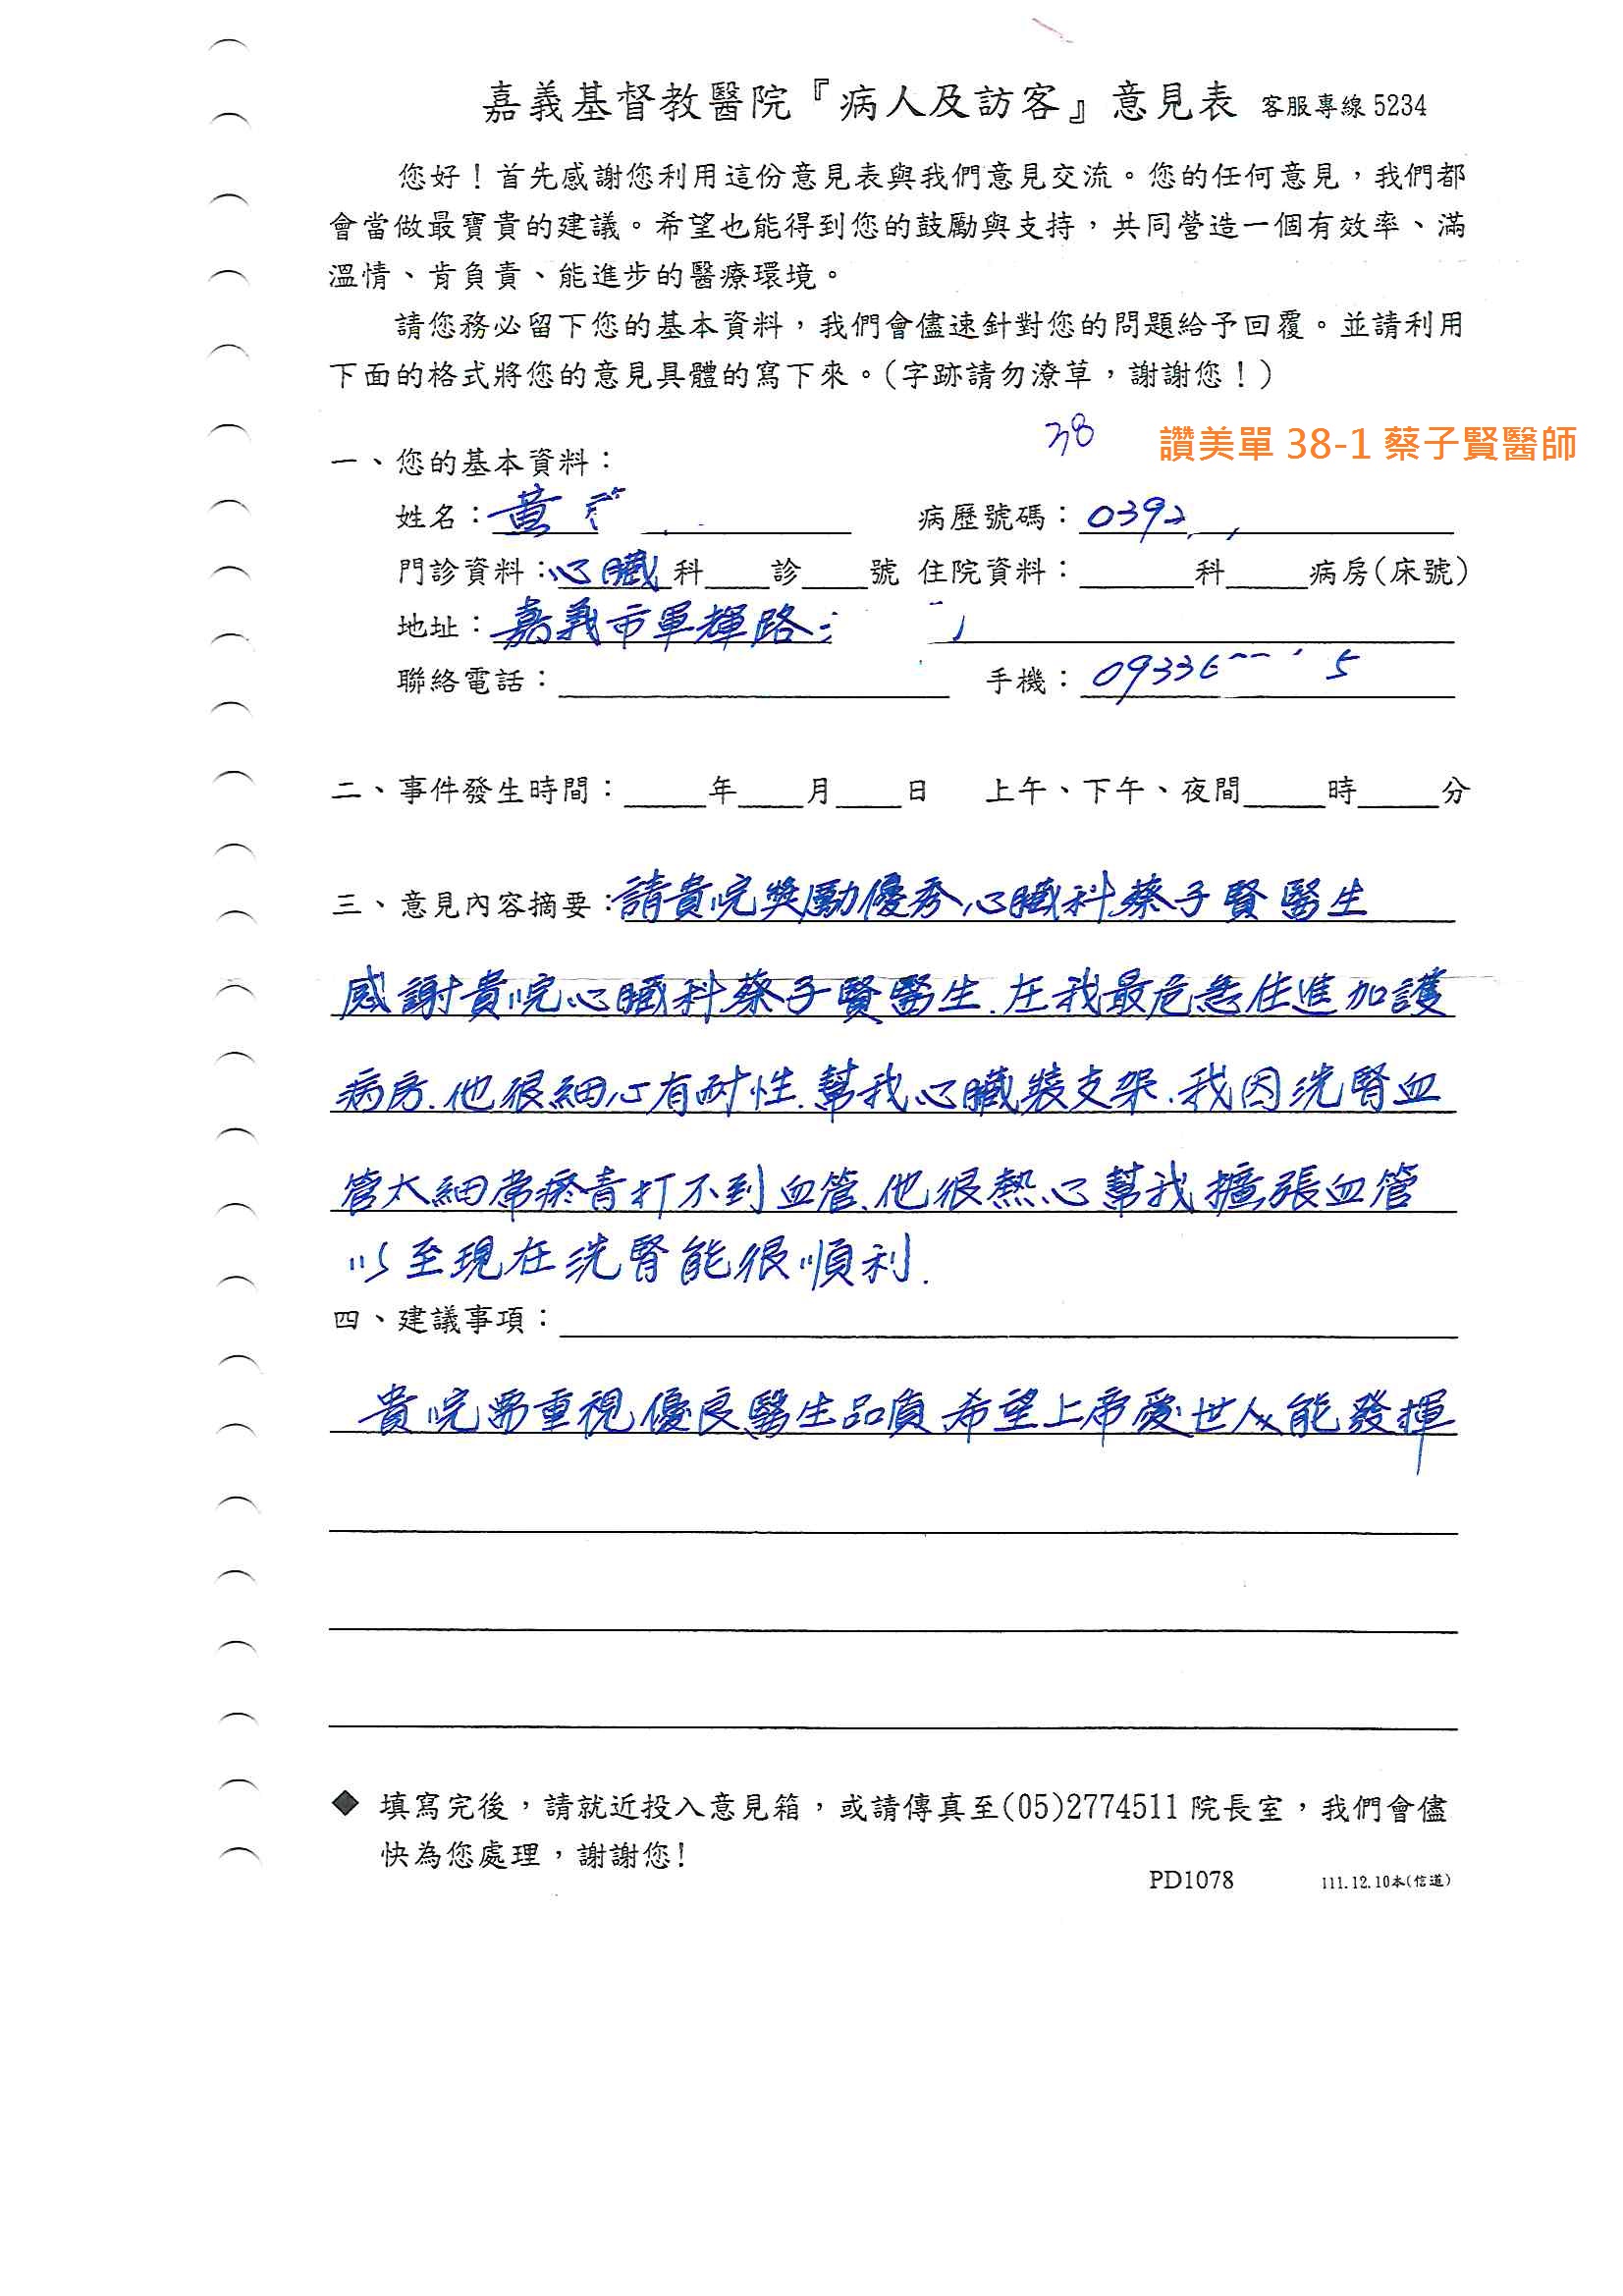 嘉義基督教醫院『病人及訪客』意見表 客服專線 5234
您好！首先感謝您利用這份意見表與我們意見交流。您的任何意見，我們都
會當做最寶貴的建議。希望也能得到您的鼓勵與支持，共同營造一個有效率、滿
溫情、肯負責、能進步的醫療環境。
請您務必留下您的基本資料，我們會儘速針對您的問題給予回覆。並請利用
下面的格式將您的意見具體的寫下來。(字跡請勿潦草，謝謝您！)
38 讚美單 38-1 蔡子賢醫師
一、您的基本資料：
姓名：黃 病歷號碼：0392
門診資料：心臟科____診____號 住院資料：______科_____病房(床號)
地址：嘉義市軍輝路
聯絡電話： 手機：0933 5
二、事件發生時間：_____年____月____日 上午、下午、夜間_____時_____分
三、意見內容摘要：請貴院獎勵優秀心臟科蔡子賢醫生
感謝貴院心臟科蔡子賢醫生.在我最危急住進加護
病房.他很細心有耐性.幫我心臟裝支架.我因洗腎血
管太細常瘀青打不到血管.他很熱心幫我擴張血管
以至現在洗腎能很順利.
四、建議事項：
貴院需重視優良醫生品質希望上帝愛世人能發揮
◆ 填寫完後，請就近投入意見箱，或請傳真至(05)2774511 院長室，我們會儘
快為您處理，謝謝您!
PD1078 111.12.10本(信道)